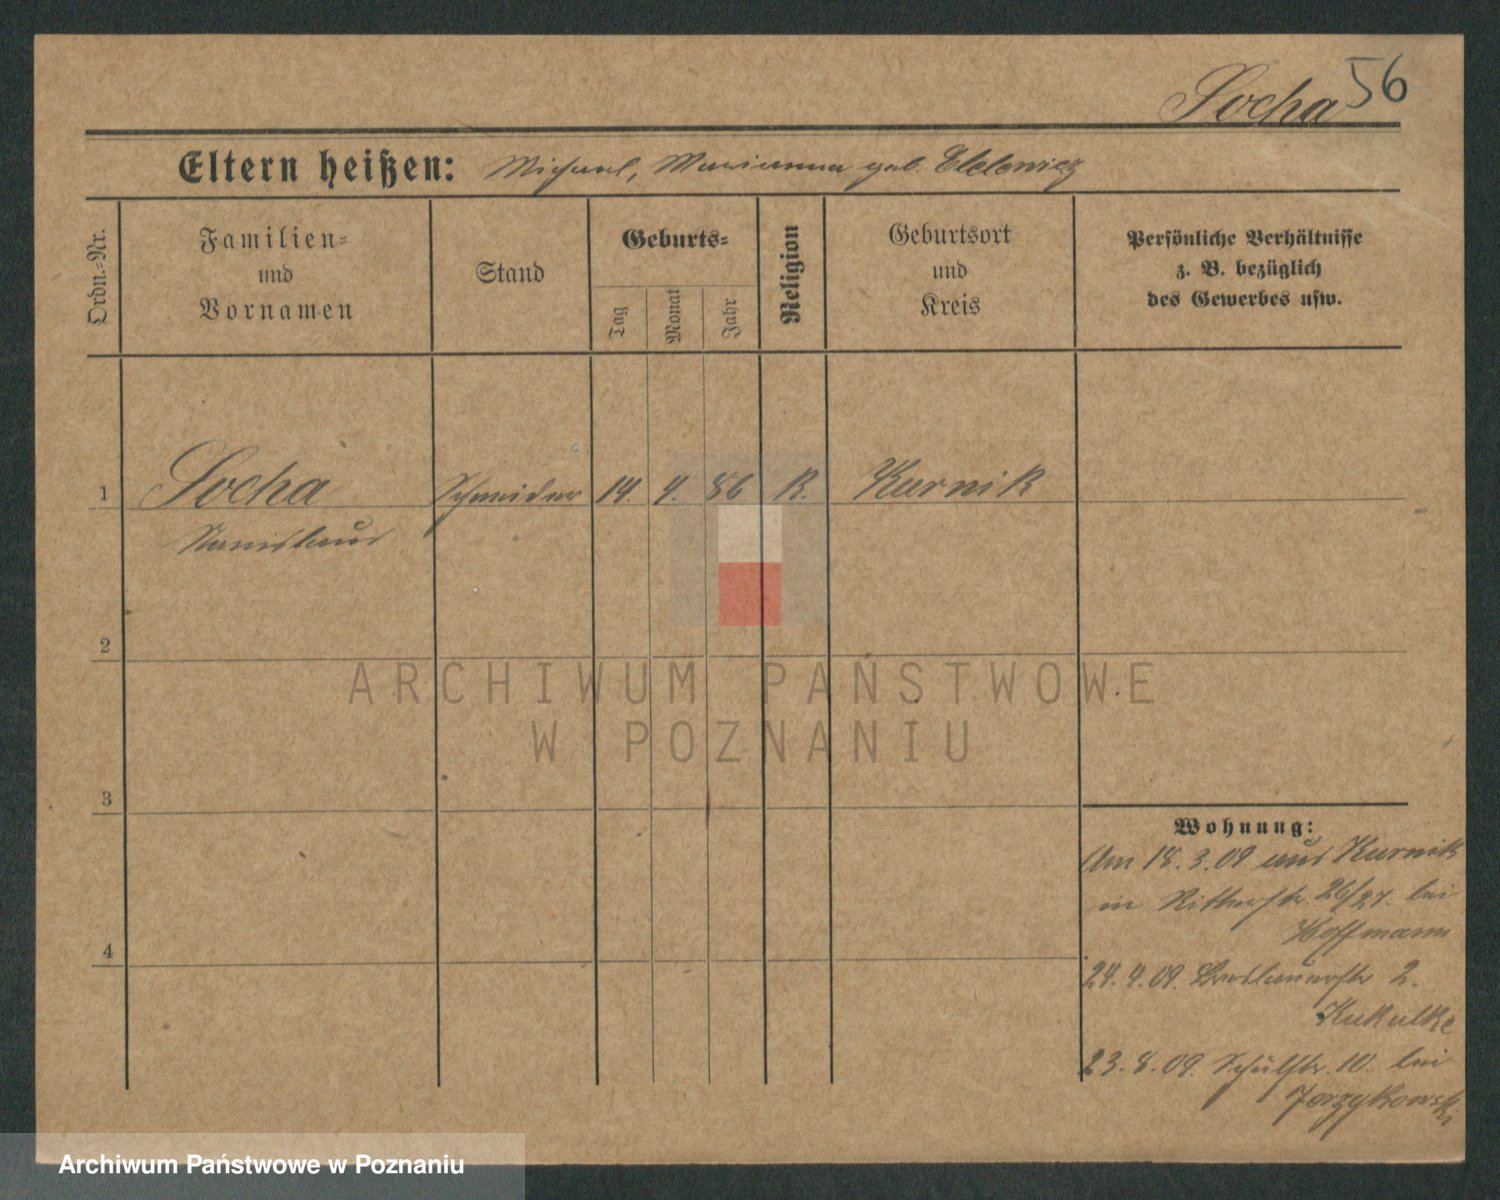 Socha 56
Eltern heißen: Michael, Marianna geb.
Ordn.=Nr.
Familien=
und
Vornamen
Stand
Geburts=
Tag
Monat
Jahr
Religion
Geburtsort
und
Kreis
Persönliche Verhältnisse
z. B. bezüglich
des Gewerbes usw.
1 Socha Schneider 14. 4. 86 K. Kurnik
Stanislaus
2
3
4
Wohnung:
Am 18. 3. 09 aus Kurnik
in Ritterstr. 26/27. bei
Hoffmann
24. 4. 09. Breslauerstr 2.
Kukulke
23. 8. 09. Schulstr. 10. bei
Jerzykowski
ARCHIWUM PAŃSTWOWE
W POZNANIU
Archiwum Państwowe w Poznaniu